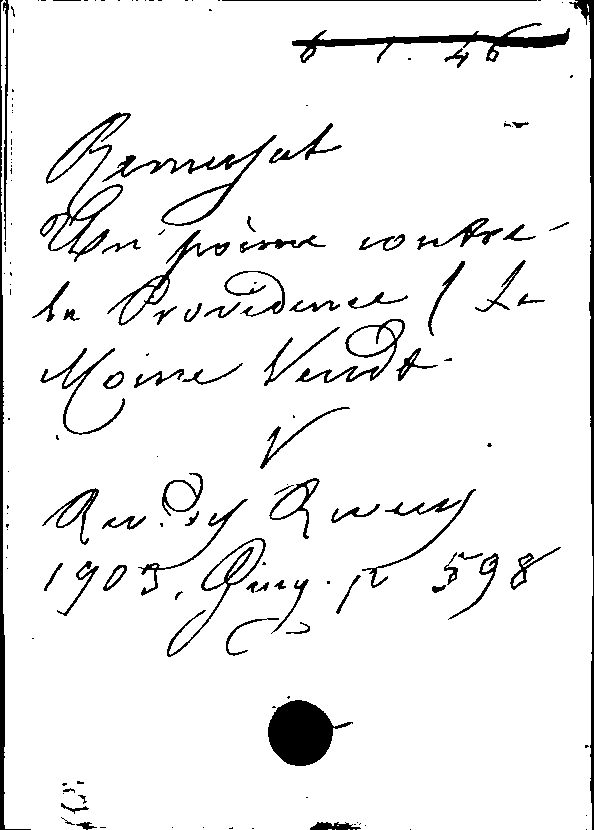 6 1. 46
Remusat
Un poème contre
la Providence (Le
Moine Vendt
V
Rev. des Revues
1903, p 598